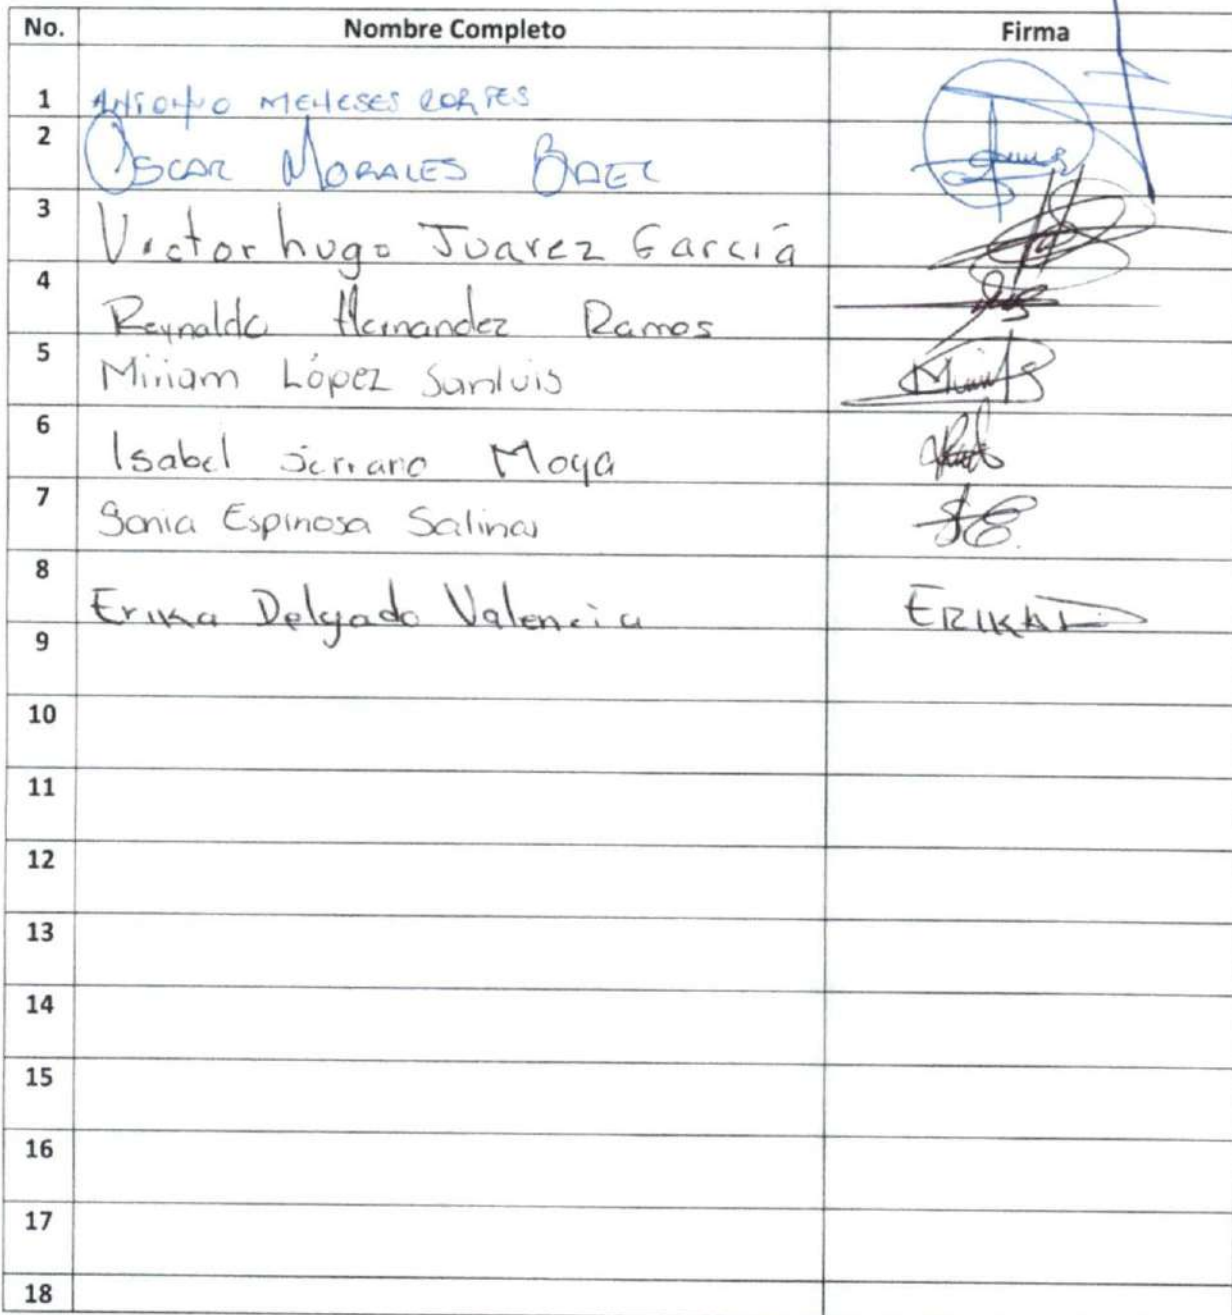 No. Nombre Completo Firma
1 ANTONIO MENESES CORTES
2 OSCAR MORALES BAEZ
3 Victor hugo Juarez García
4 Reynaldo Hernandez Ramos
5 Miriam López Sanluis
6 Isabel Serrano Moya
7 Sonia Espinosa Salinas
8 Erika Delgado Valencia ERIKAD
9
10
11
12
13
14
15
16
17
18